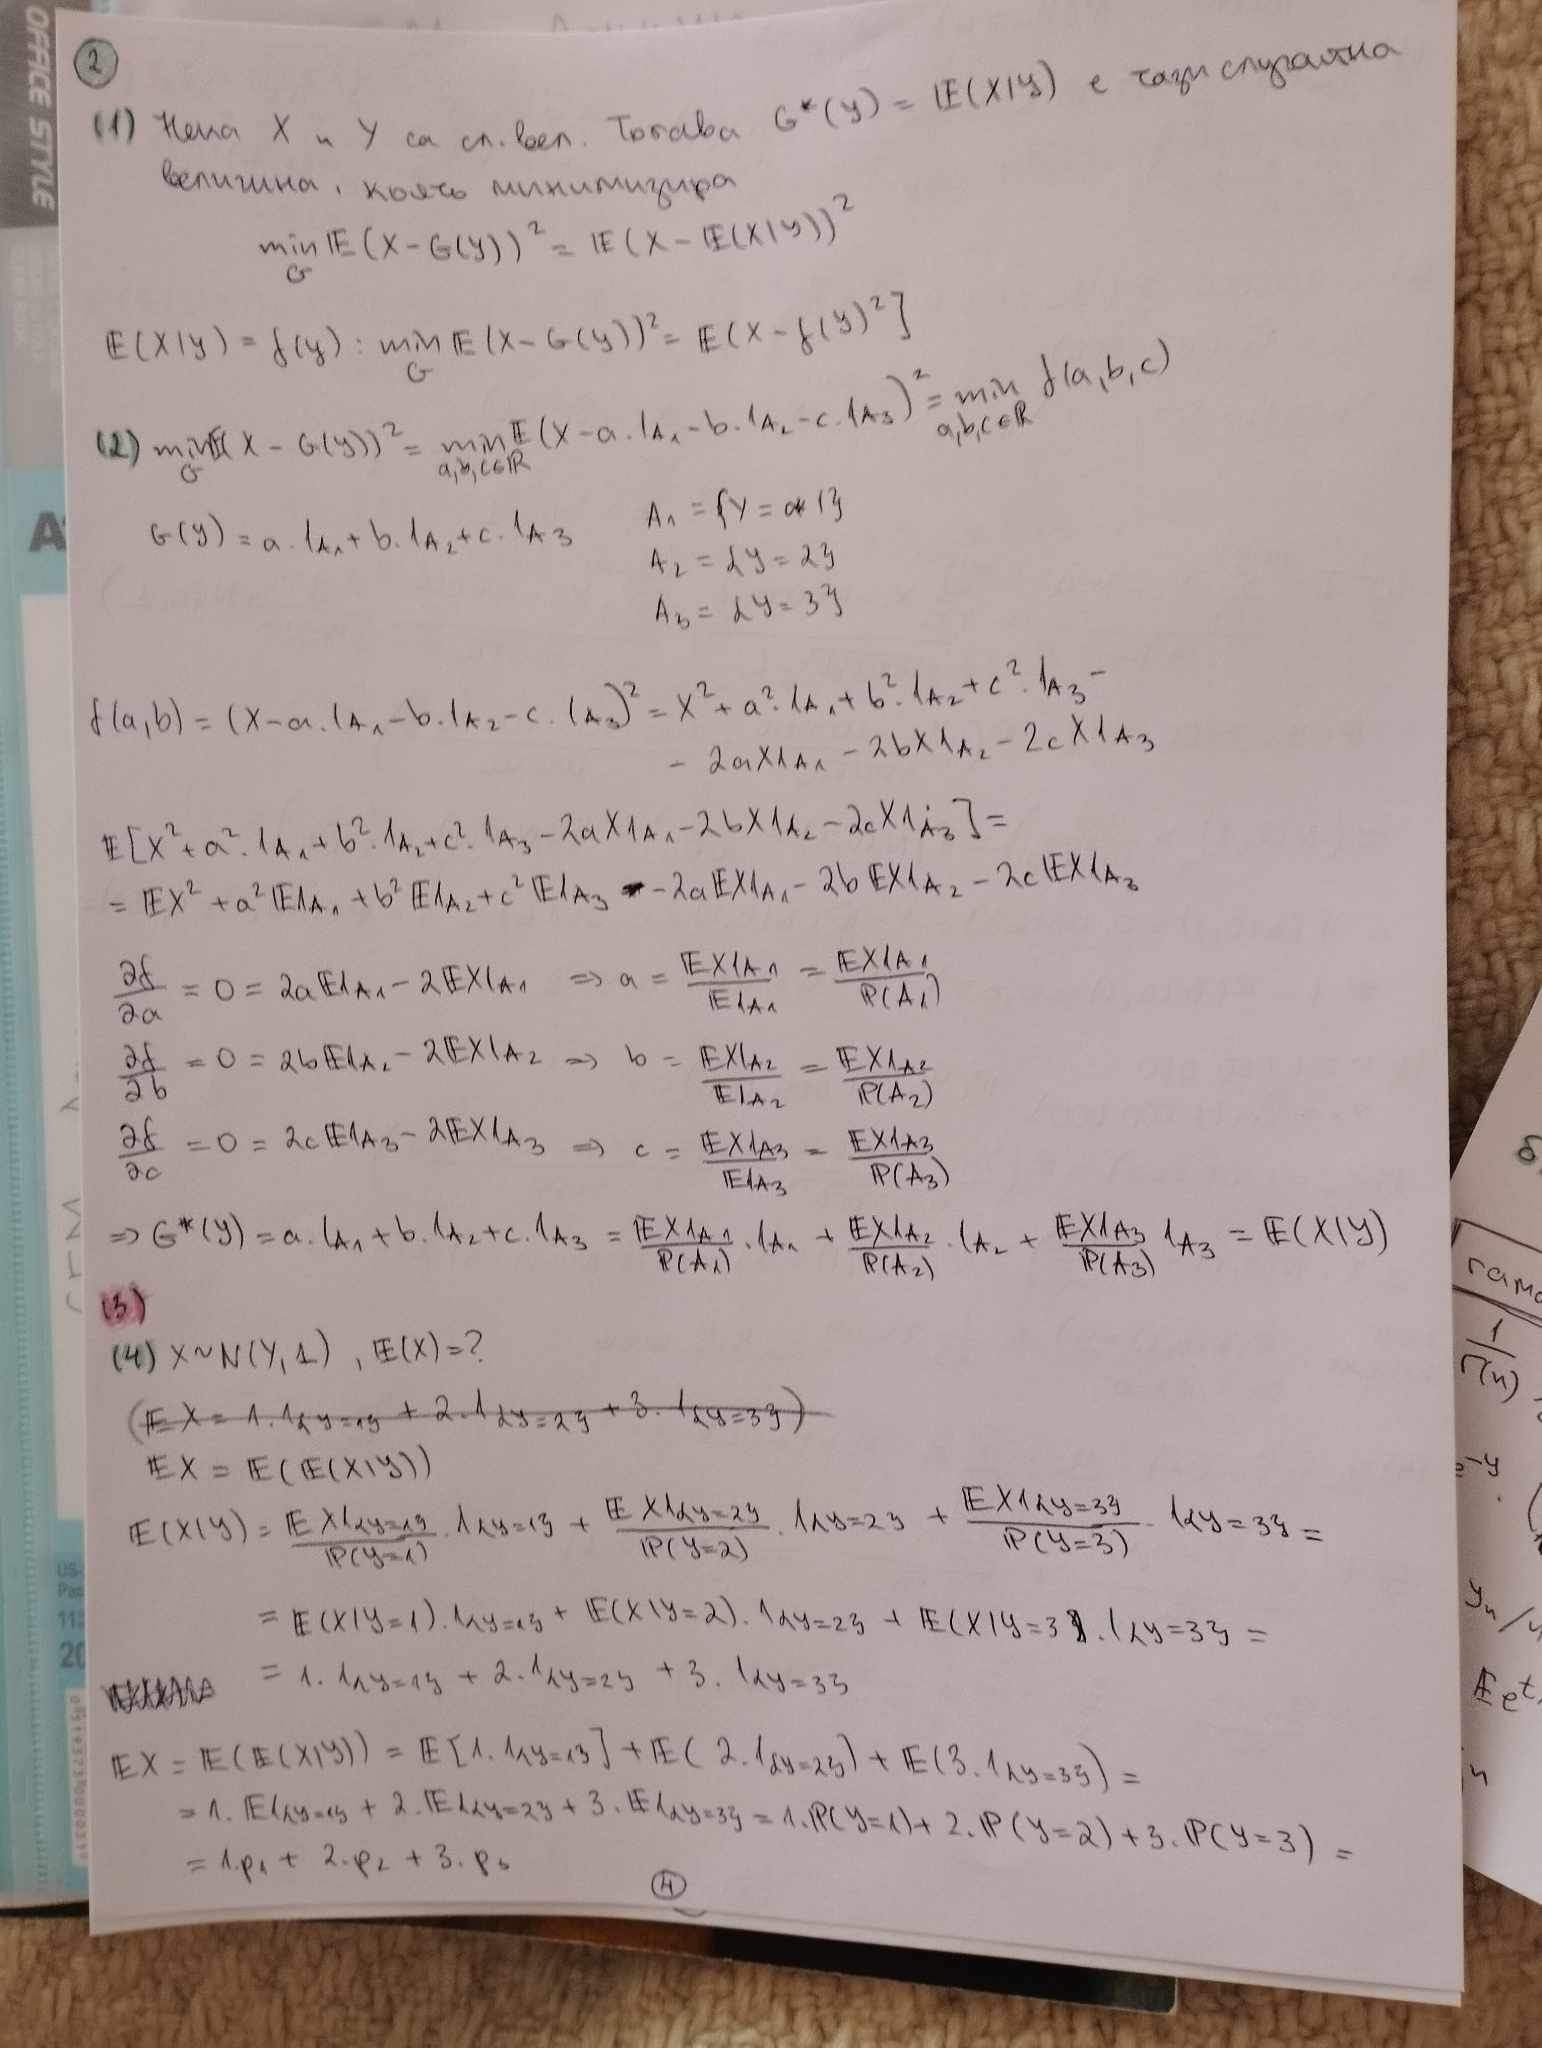 OFFICE STYLE
2
(1) Нека X и Y са сл. вел. Тогава G*(Y) = 𝔼(X|Y) е тази случайна
величина, която минимизира
min_G 𝔼(X-G(Y))² = 𝔼(X-𝔼(X|Y))²
𝔼(X|Y) = f(y) : min_G 𝔼(X-G(Y))² = 𝔼(X-f(Y)²]
(2) min_G 𝔼(X-G(Y))² = min_{a,b,c∈ℝ} 𝔼(X-a.1_{A1}-b.1_{A2}-c.1_{A3})² = min_{a,b,c∈ℝ} f(a,b,c)
G(Y) = a.1_{A1}+b.1_{A2}+c.1_{A3}
A₁ = {Y = 1}
A₂ = {Y = 2}
A₃ = {Y = 3}
f(a,b) = (X-a.1_{A1}-b.1_{A2}-c.1_{A3})² = X²+a².1_{A1}+b².1_{A2}+c².1_{A3}-
- 2aX1_{A1} - 2bX1_{A2} - 2cX1_{A3}
𝔼[X²+a².1_{A1}+b².1_{A2}+c².1_{A3}-2aX1_{A1}-2bX1_{A2}-2cX1_{A3}] =
= 𝔼X²+a²𝔼1_{A1}+b²𝔼1_{A2}+c²𝔼1_{A3} - 2a𝔼X1_{A1} - 2b𝔼X1_{A2} - 2c𝔼X1_{A3}
∂f/∂a = 0 = 2a𝔼1_{A1} - 2𝔼X1_{A1} => a = 𝔼X1_{A1}/𝔼1_{A1} = 𝔼X1_{A1}/ℙ(A₁)
∂f/∂b = 0 = 2b𝔼1_{A2} - 2𝔼X1_{A2} => b = 𝔼X1_{A2}/𝔼1_{A2} = 𝔼X1_{A2}/ℙ(A₂)
∂f/∂c = 0 = 2c𝔼1_{A3} - 2𝔼X1_{A3} => c = 𝔼X1_{A3}/𝔼1_{A3} = 𝔼X1_{A3}/ℙ(A₃)
=> G*(Y) = a.1_{A1}+b.1_{A2}+c.1_{A3} = 𝔼X1_{A1}/ℙ(A₁) .1_{A1} + 𝔼X1_{A2}/ℙ(A₂) .1_{A2} + 𝔼X1_{A3}/ℙ(A₃) 1_{A3} = 𝔼(X|Y)
(3)
(4) X~N(Y,1), 𝔼(X)=?
(𝔼X = 1.1_{Y=1} + 2.1_{Y=2} + 3.1_{Y=3})
𝔼X = 𝔼(𝔼(X|Y))
𝔼(X|Y) = 𝔼X1_{Y=1}/ℙ(Y=1) .1_{Y=1} + 𝔼X1_{Y=2}/ℙ(Y=2) .1_{Y=2} + 𝔼X1_{Y=3}/ℙ(Y=3) .1_{Y=3} =
= 𝔼(X|Y=1).1_{Y=1} + 𝔼(X|Y=2).1_{Y=2} + 𝔼(X|Y=3).1_{Y=3} =
= 1.1_{Y=1} + 2.1_{Y=2} + 3.1_{Y=3}
𝔼X = 𝔼(𝔼(X|Y)) = 𝔼[1.1_{Y=1}] + 𝔼(2.1_{Y=2}) + 𝔼(3.1_{Y=3}) =
= 1.𝔼1_{Y=1} + 2.𝔼1_{Y=2} + 3.𝔼1_{Y=3} = 1.ℙ(Y=1) + 2.ℙ(Y=2) + 3.ℙ(Y=3) =
= 1.p₁ + 2.p₂ + 3.p₃
4